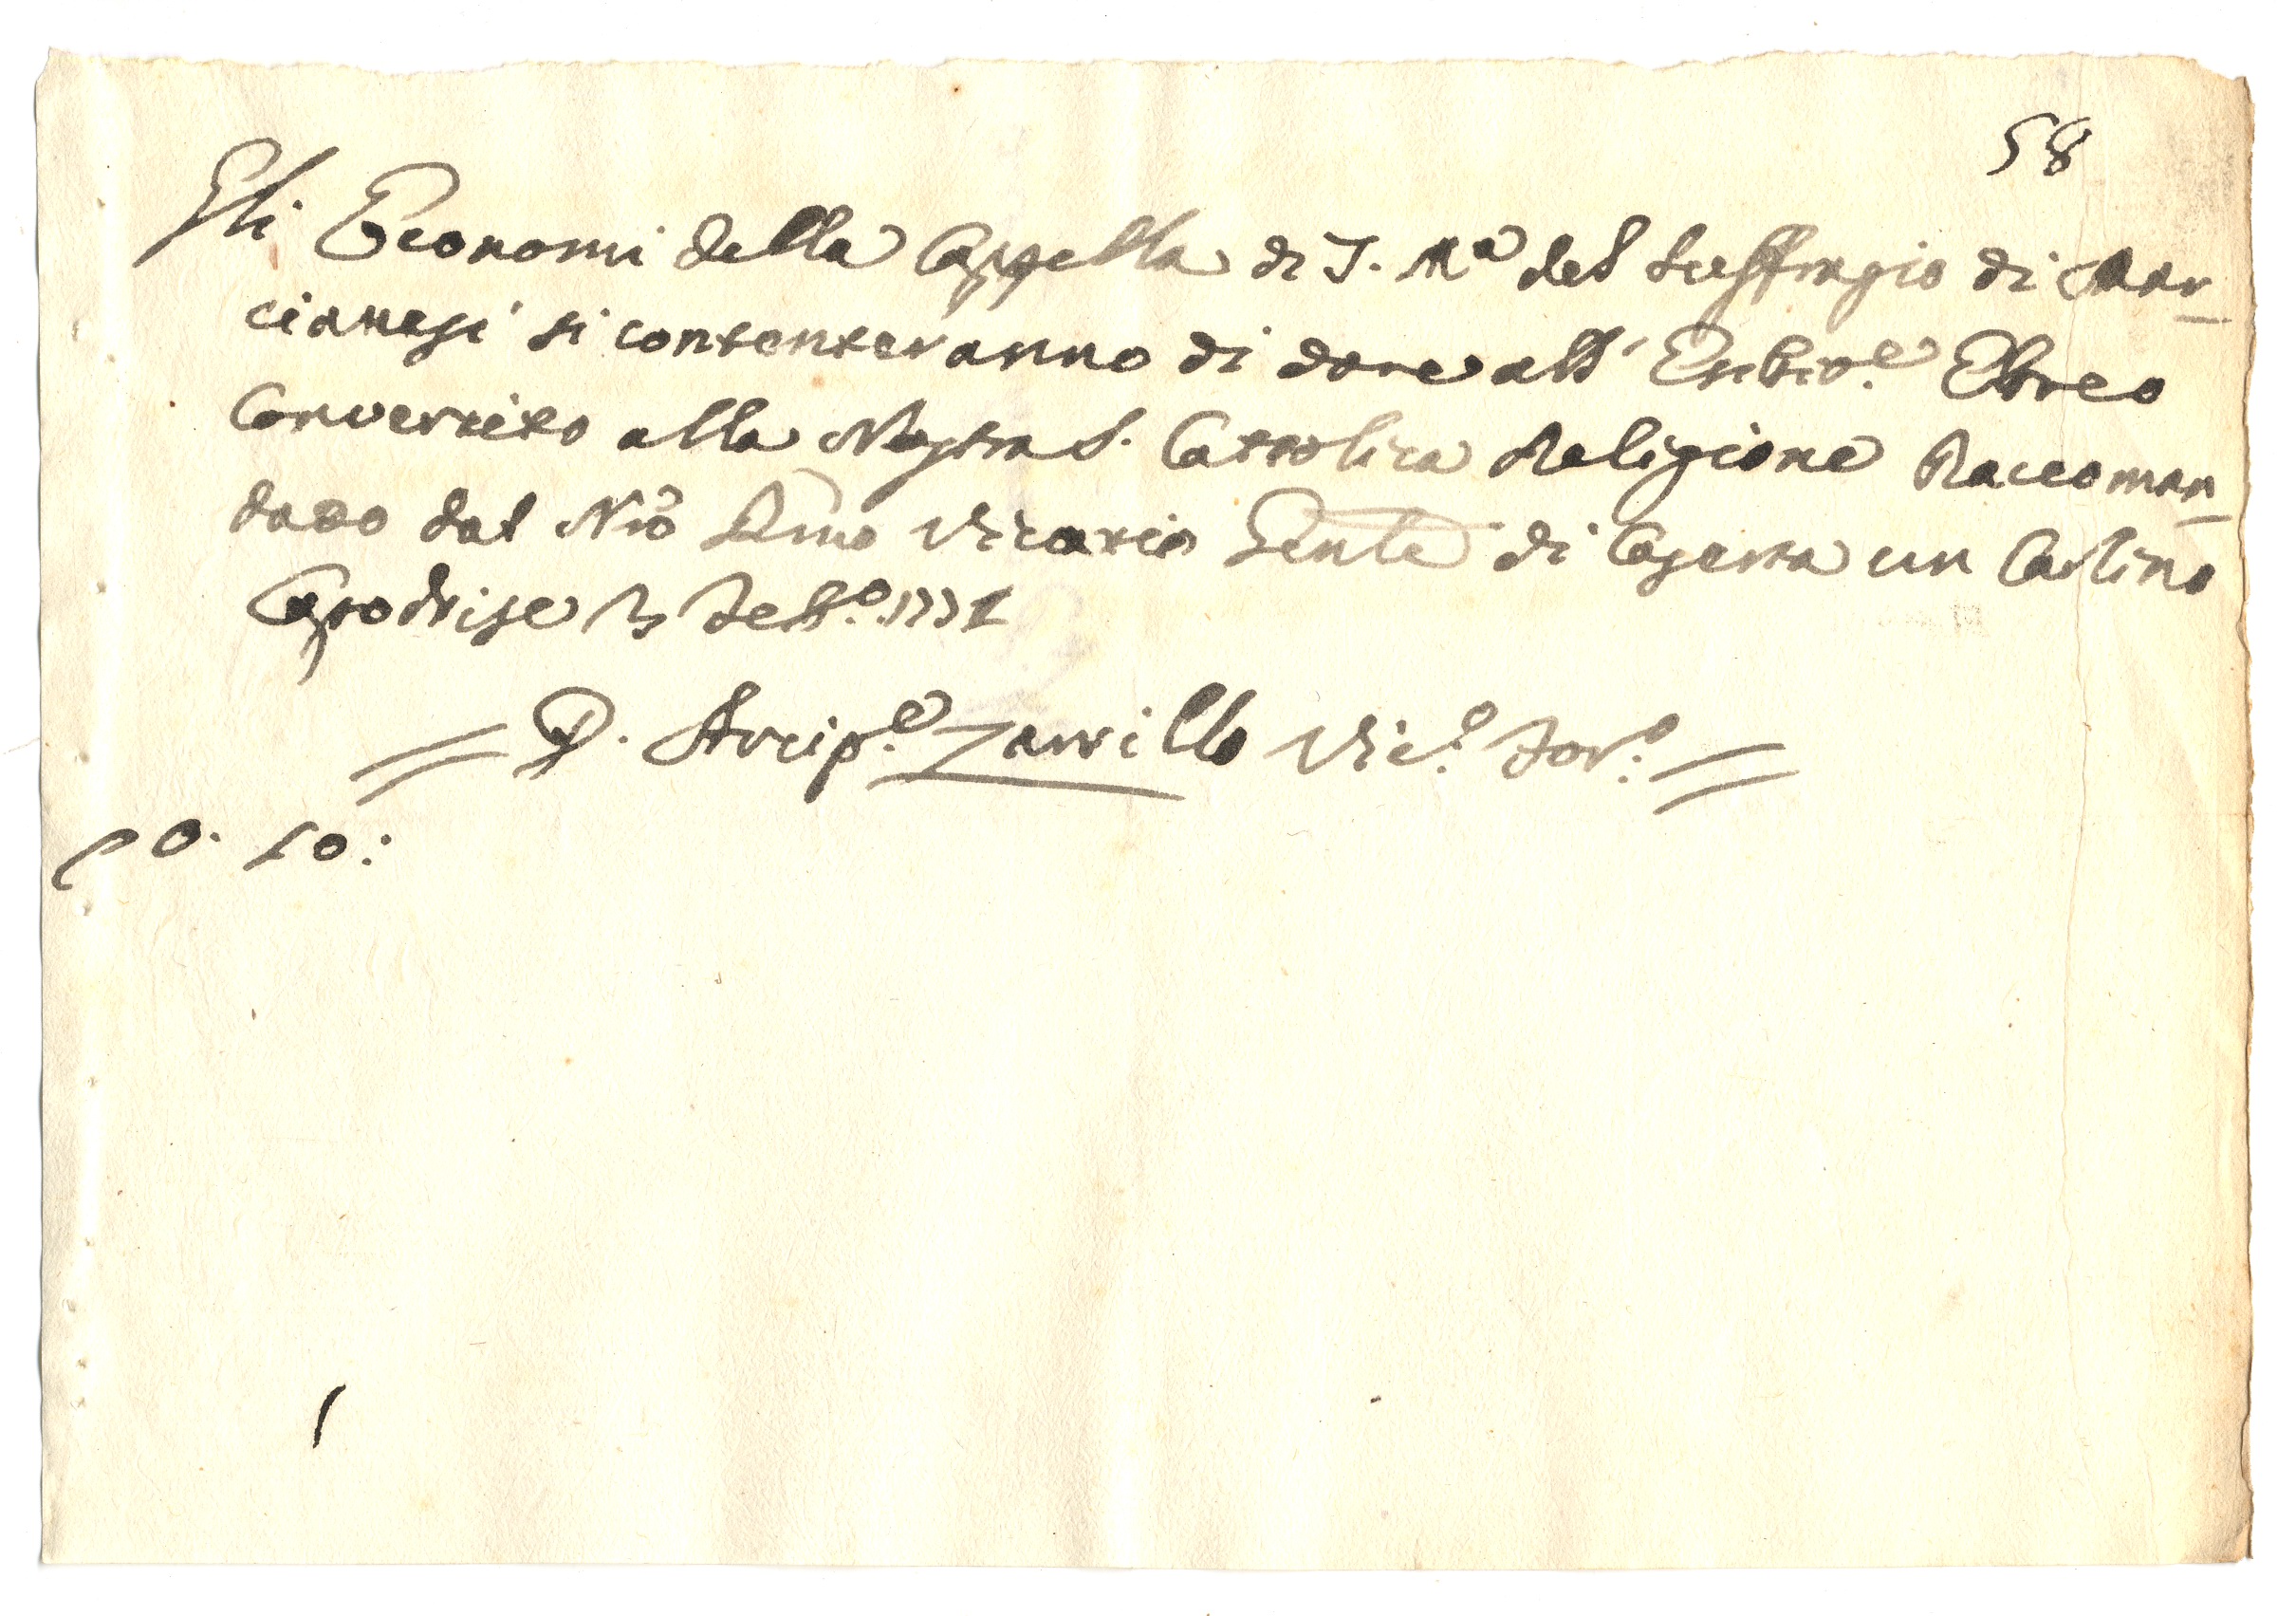 58
Gli Economi della Cappella di S. Mᵃ del Suffragio di Mar
cianesi si contenteranno di dare all' Esibitᵉ Ebreo
Convertito alla Nostra S. Cattolica Religione Raccoman
dato dal Nrõ Vicario Genle di Caserta un Carlino
Capodrise Febbᵒ. 1771
D. Arcipᵉ. Zarrillo Vicᵒ. Forᵒ:
0. 10: